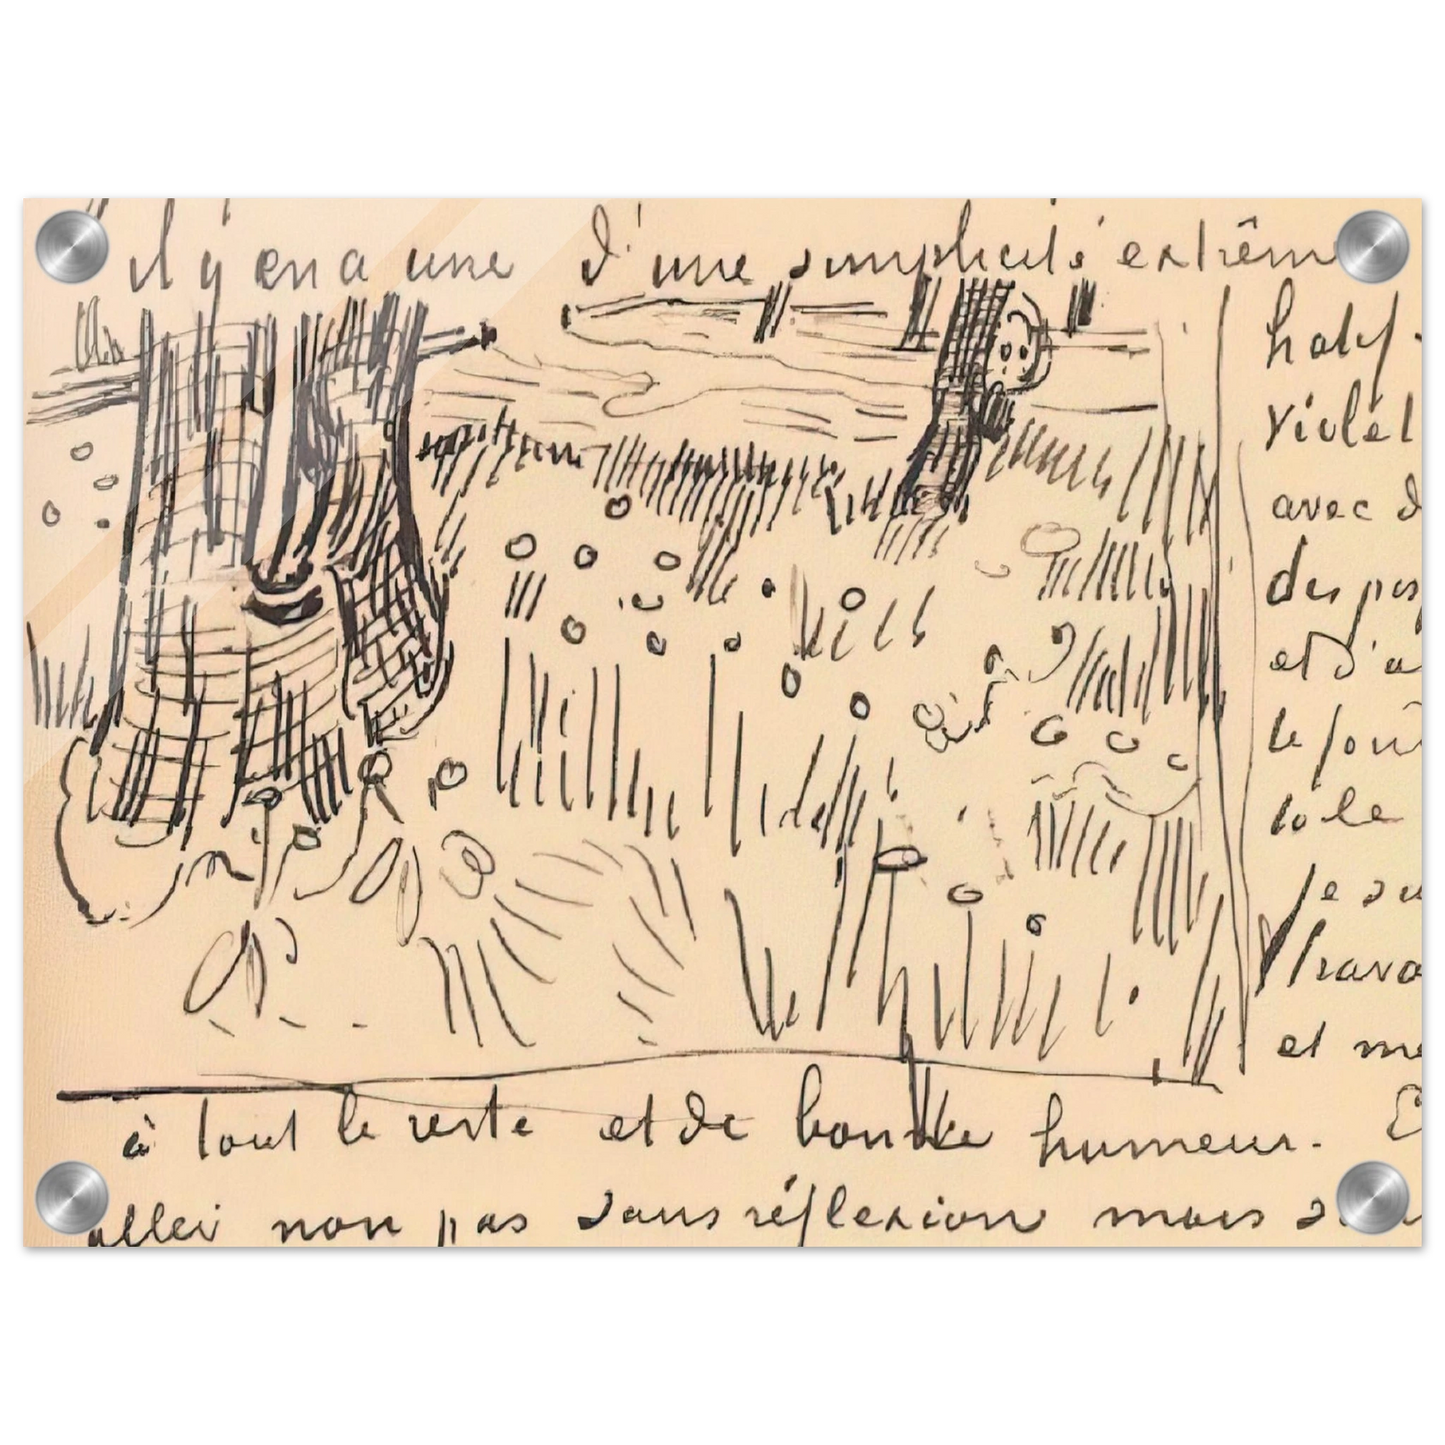 il y en a une d'une simplicité extrême
violet
avec d
des pos
et d'a
le four
tole
Je su
Trava
et me
à tout le reste et de bonne humeur. E
aller non pas sans réflexion mais s